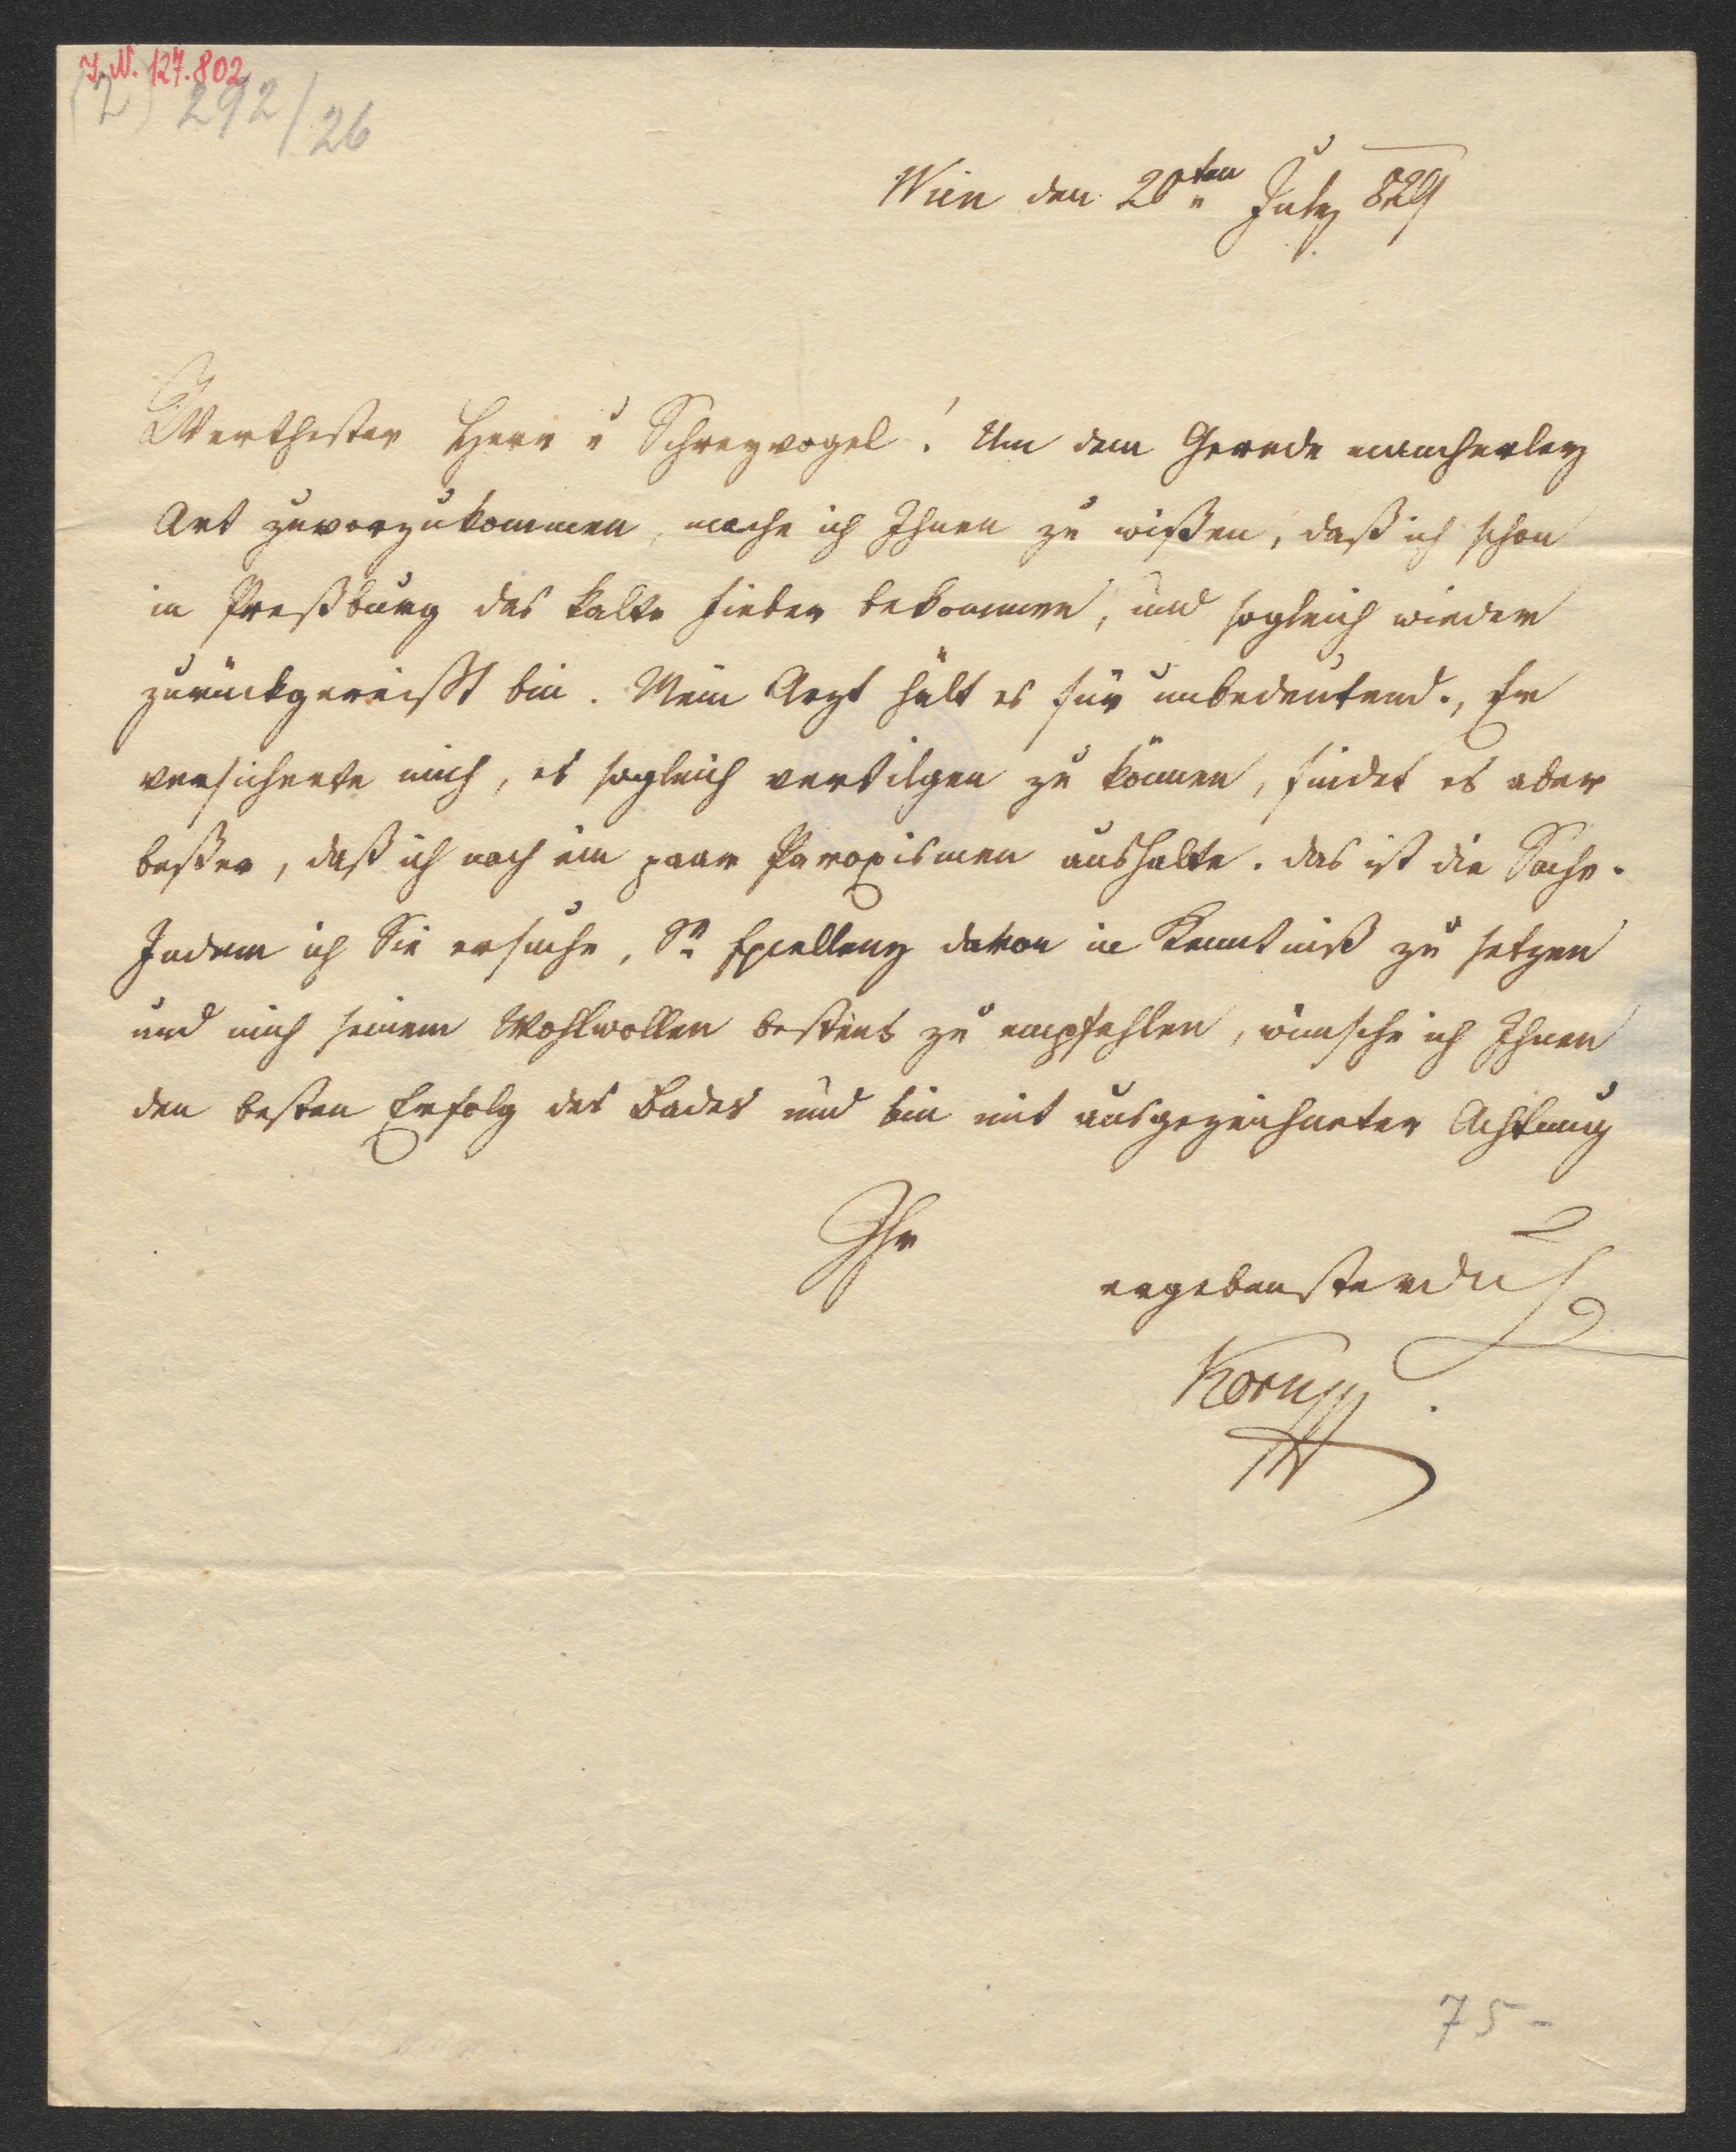 I. N. 127.802
(2) 292/26
Wien den 20ten July 829
Werthester Herr v Schreyvogel! Um dem Gerede mancherley
Art zuvorzukommen, mache ich Ihnen zu wißen, daß ich schon
in Preßburg das kalte Fieber bekommen, und sogleich wieder
zurückgereißt bin. Mein Arzt hält es für unbedeutend., Er
versicherte mich, es sogleich vertilgen zu können, findet es aber
beßer, daß ich noch ein paar Paroxismen aushalte. das ist die Sache.
Indem ich Sie ersuche, Sr Excellenz davon in Kenntniß zu setzen
und mich seinem Wohlwollen bestens zu empfehlen, wünsche ich Ihnen
den besten Erfolg des Bades und bin mit ausgezeichneter Achtung
Ihr
ergebenster
Korn
75-